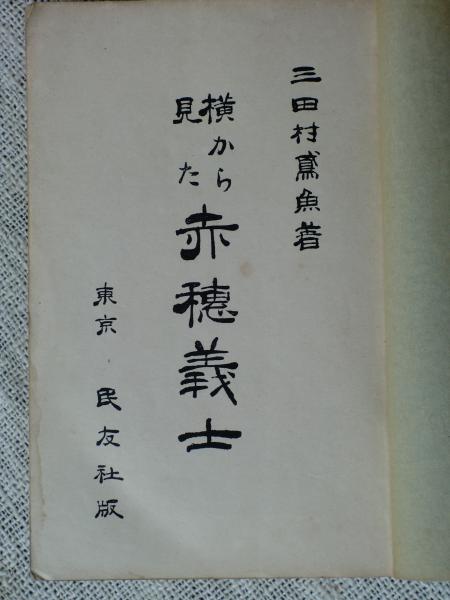 三田村鳶魚著
横から
見た
赤穗義士
東京 民友社版